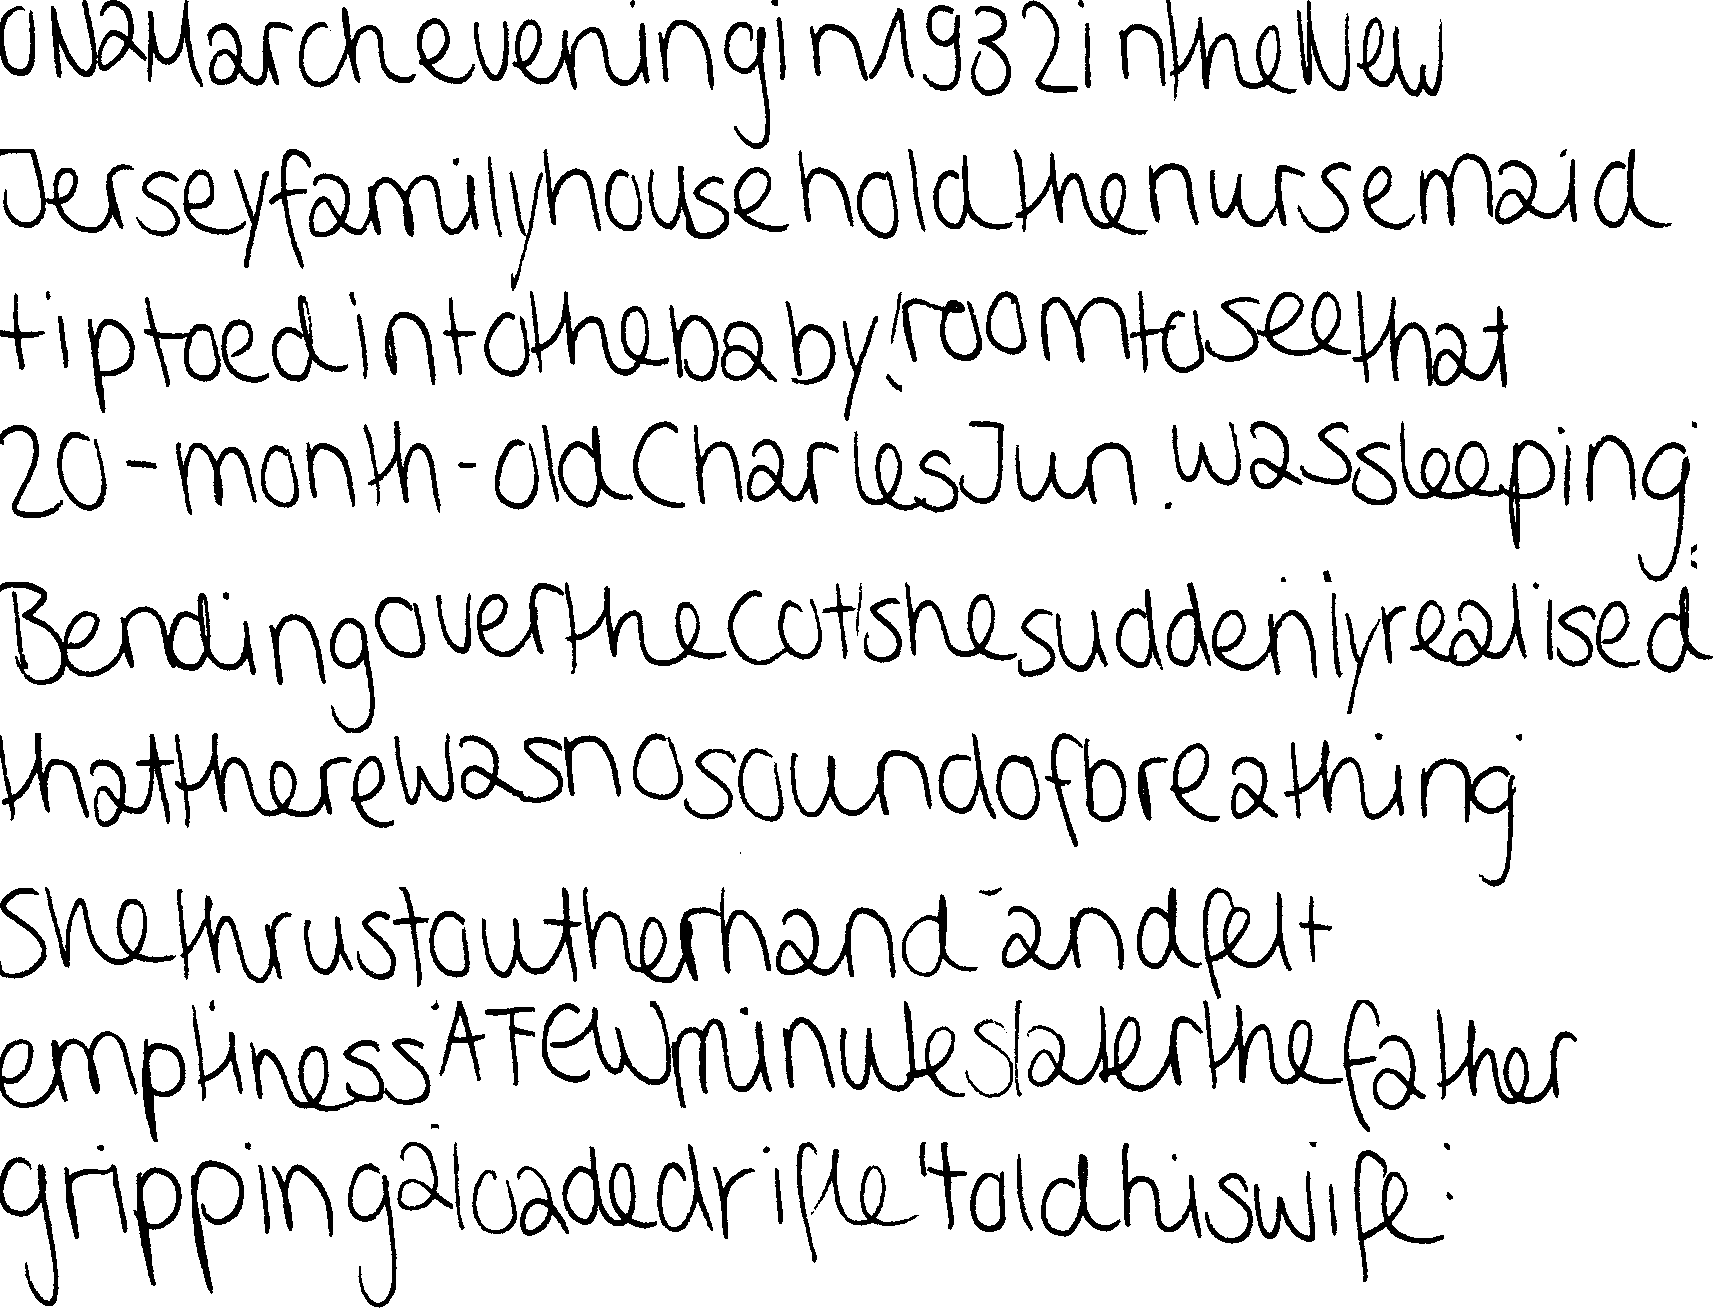 ON a March evening in 1932 in the New
Jersey family household the nursemaid
tiptoed into the baby's room to see that
20-month-old Charles Jun. was sleeping.
Bending over the cot, she suddenly realised
that there was no sound of breathing
She thrust out her hand - and felt
emptiness. A FEW minutes later the father
gripping a loaded rifle, told his wife: